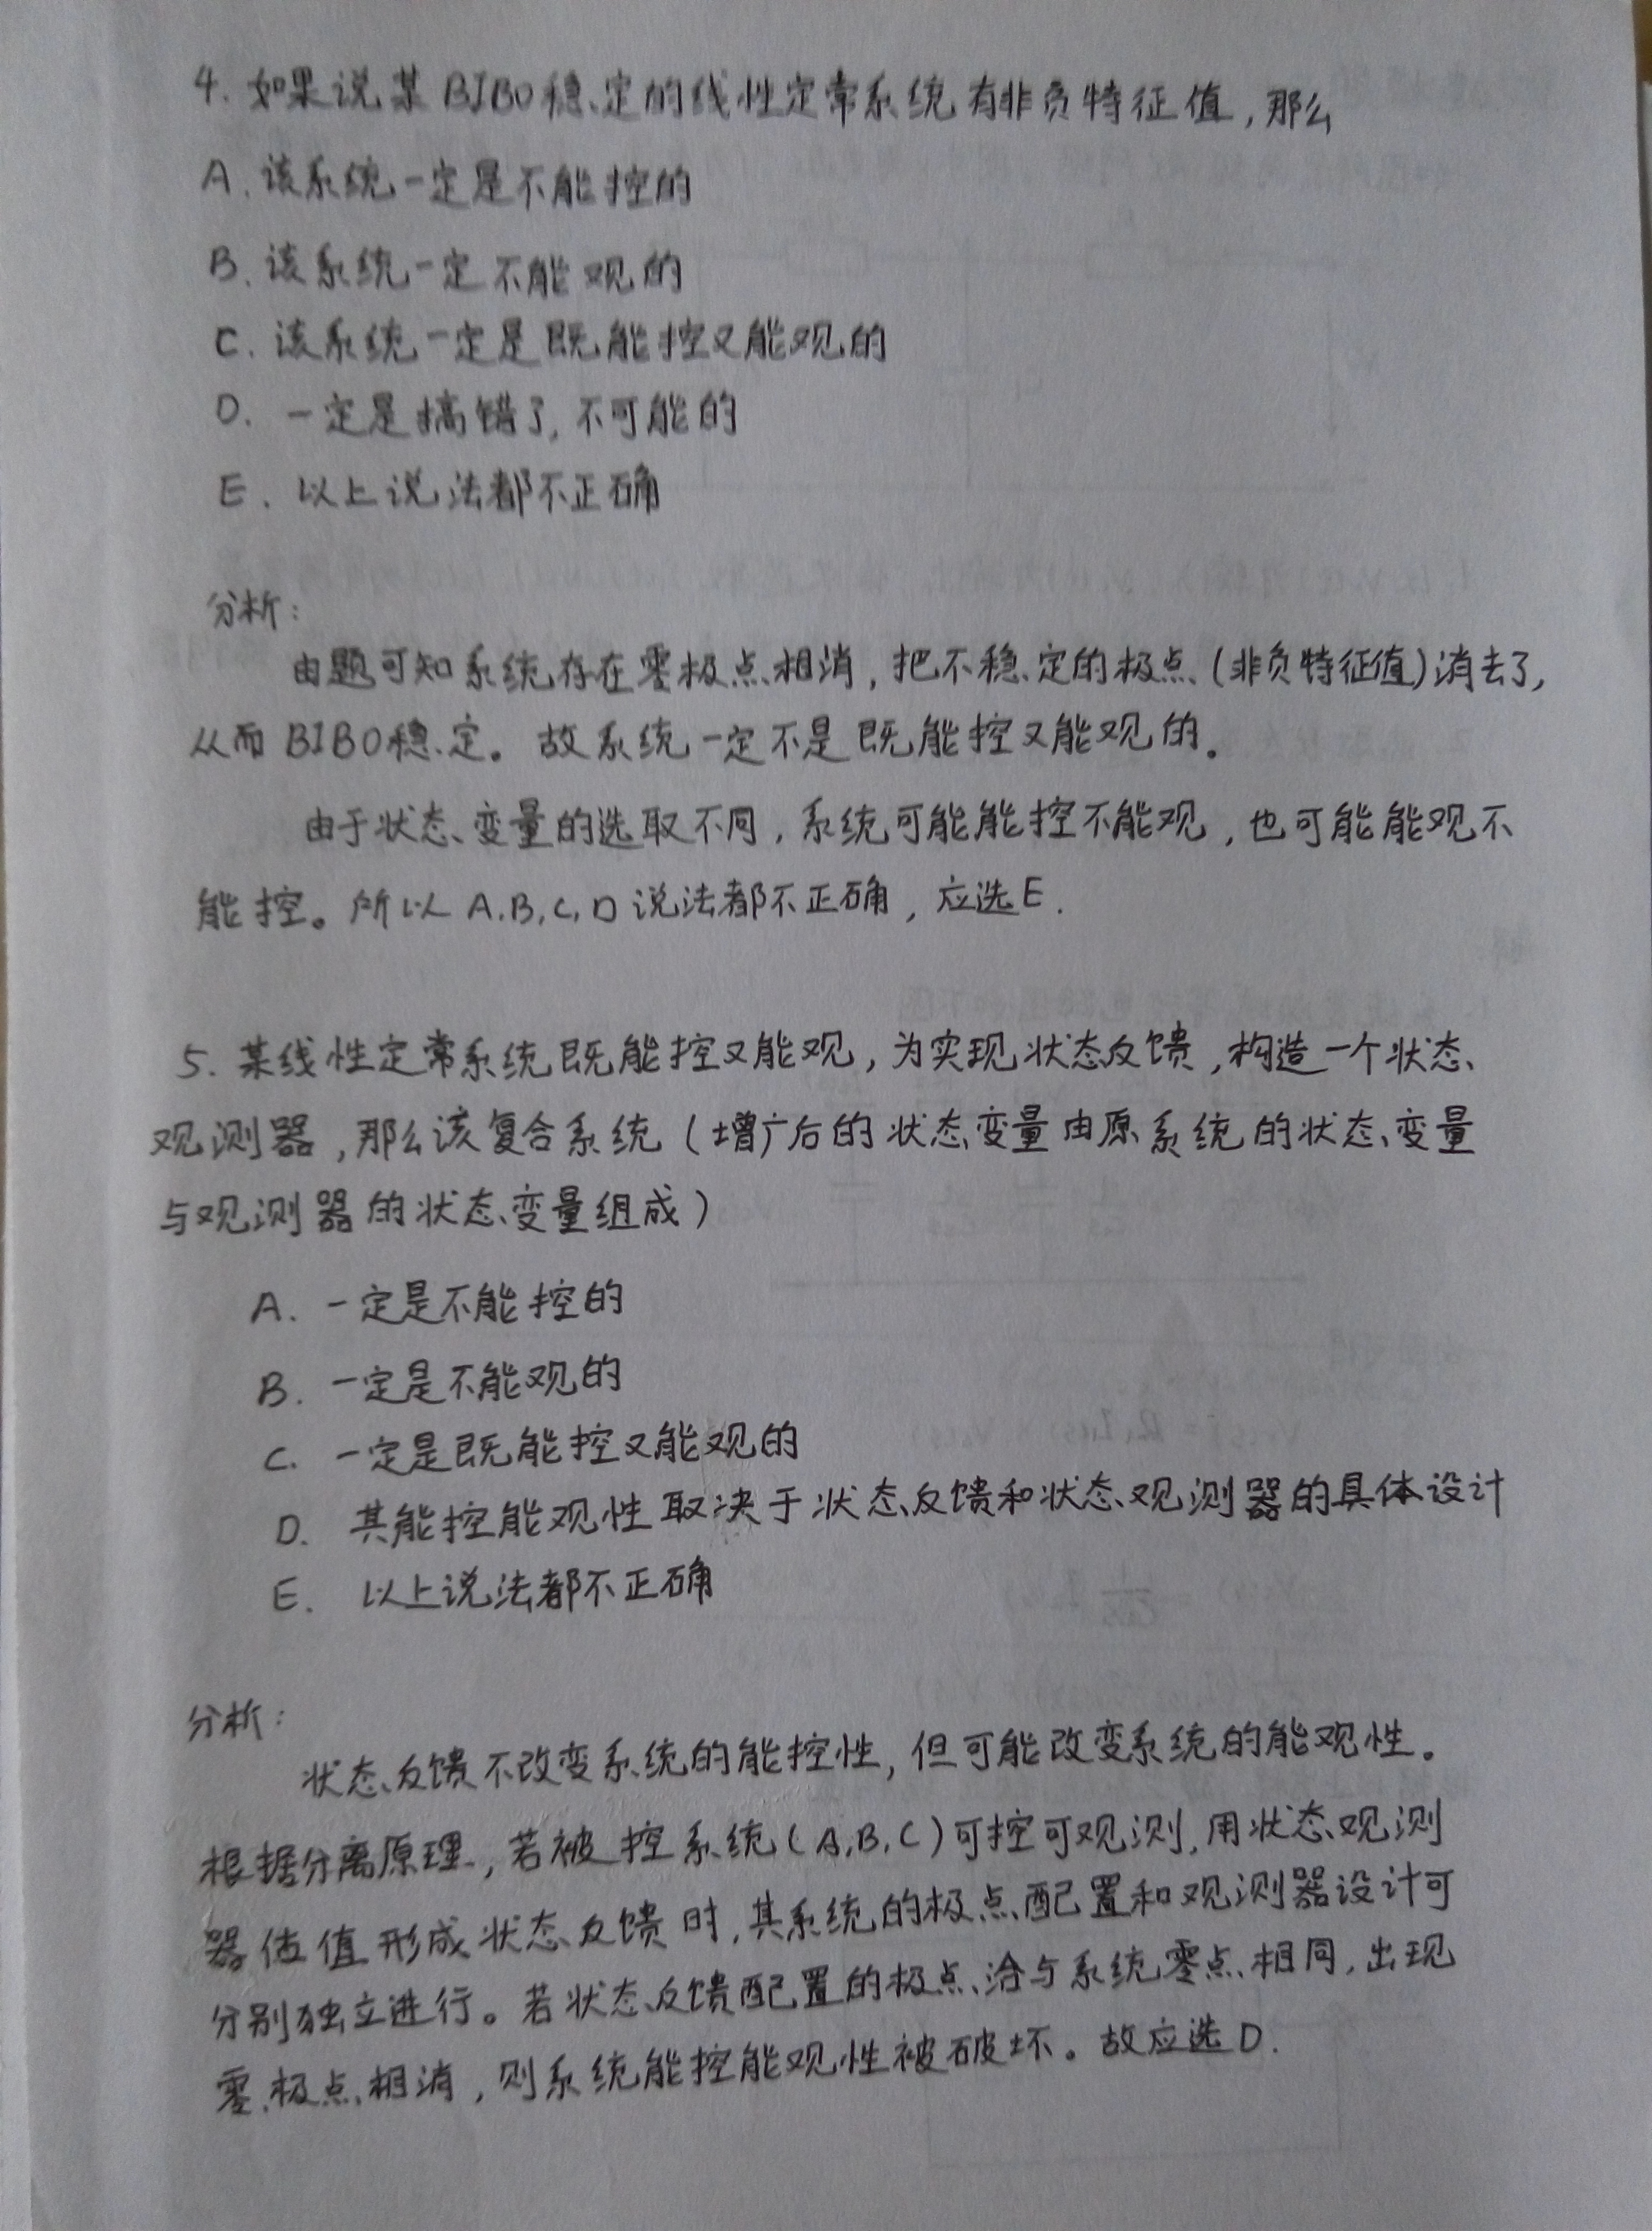 4. 如果说某BIBO稳定的线性定常系统有非负特征值，那么
A. 该系统一定是不能控的
B. 该系统一定不能观的
C. 该系统一定是既能控又能观的
D. 一定是搞错了，不可能的
E. 以上说法都不正确
分析：
由题可知系统存在零极点相消，把不稳定的极点（非负特征值）消去了，
从而BIBO稳定。故系统一定不是既能控又能观的。
由于状态变量的选取不同，系统可能能控不能观，也可能能观不
能控。所以A,B,C,D说法都不正确，应选E.
5. 某线性定常系统既能控又能观，为实现状态反馈，构造一个状态
观测器，那么该复合系统（增广后的状态变量由原系统的状态变量
与观测器的状态变量组成）
A. 一定是不能控的
B. 一定是不能观的
C. 一定是既能控又能观的
D. 其能控能观性取决于状态反馈和状态观测器的具体设计
E. 以上说法都不正确
分析：
状态反馈不改变系统的能控性，但可能改变系统的能观性。
根据分离原理，若被控系统（A,B,C）可控可观测，用状态观测
器估值形成状态反馈时，其系统的极点配置和观测器设计可
分别独立进行。若状态反馈配置的极点恰与系统零点相同，出现
零极点相消，则系统能控能观性被破坏。故应选D.